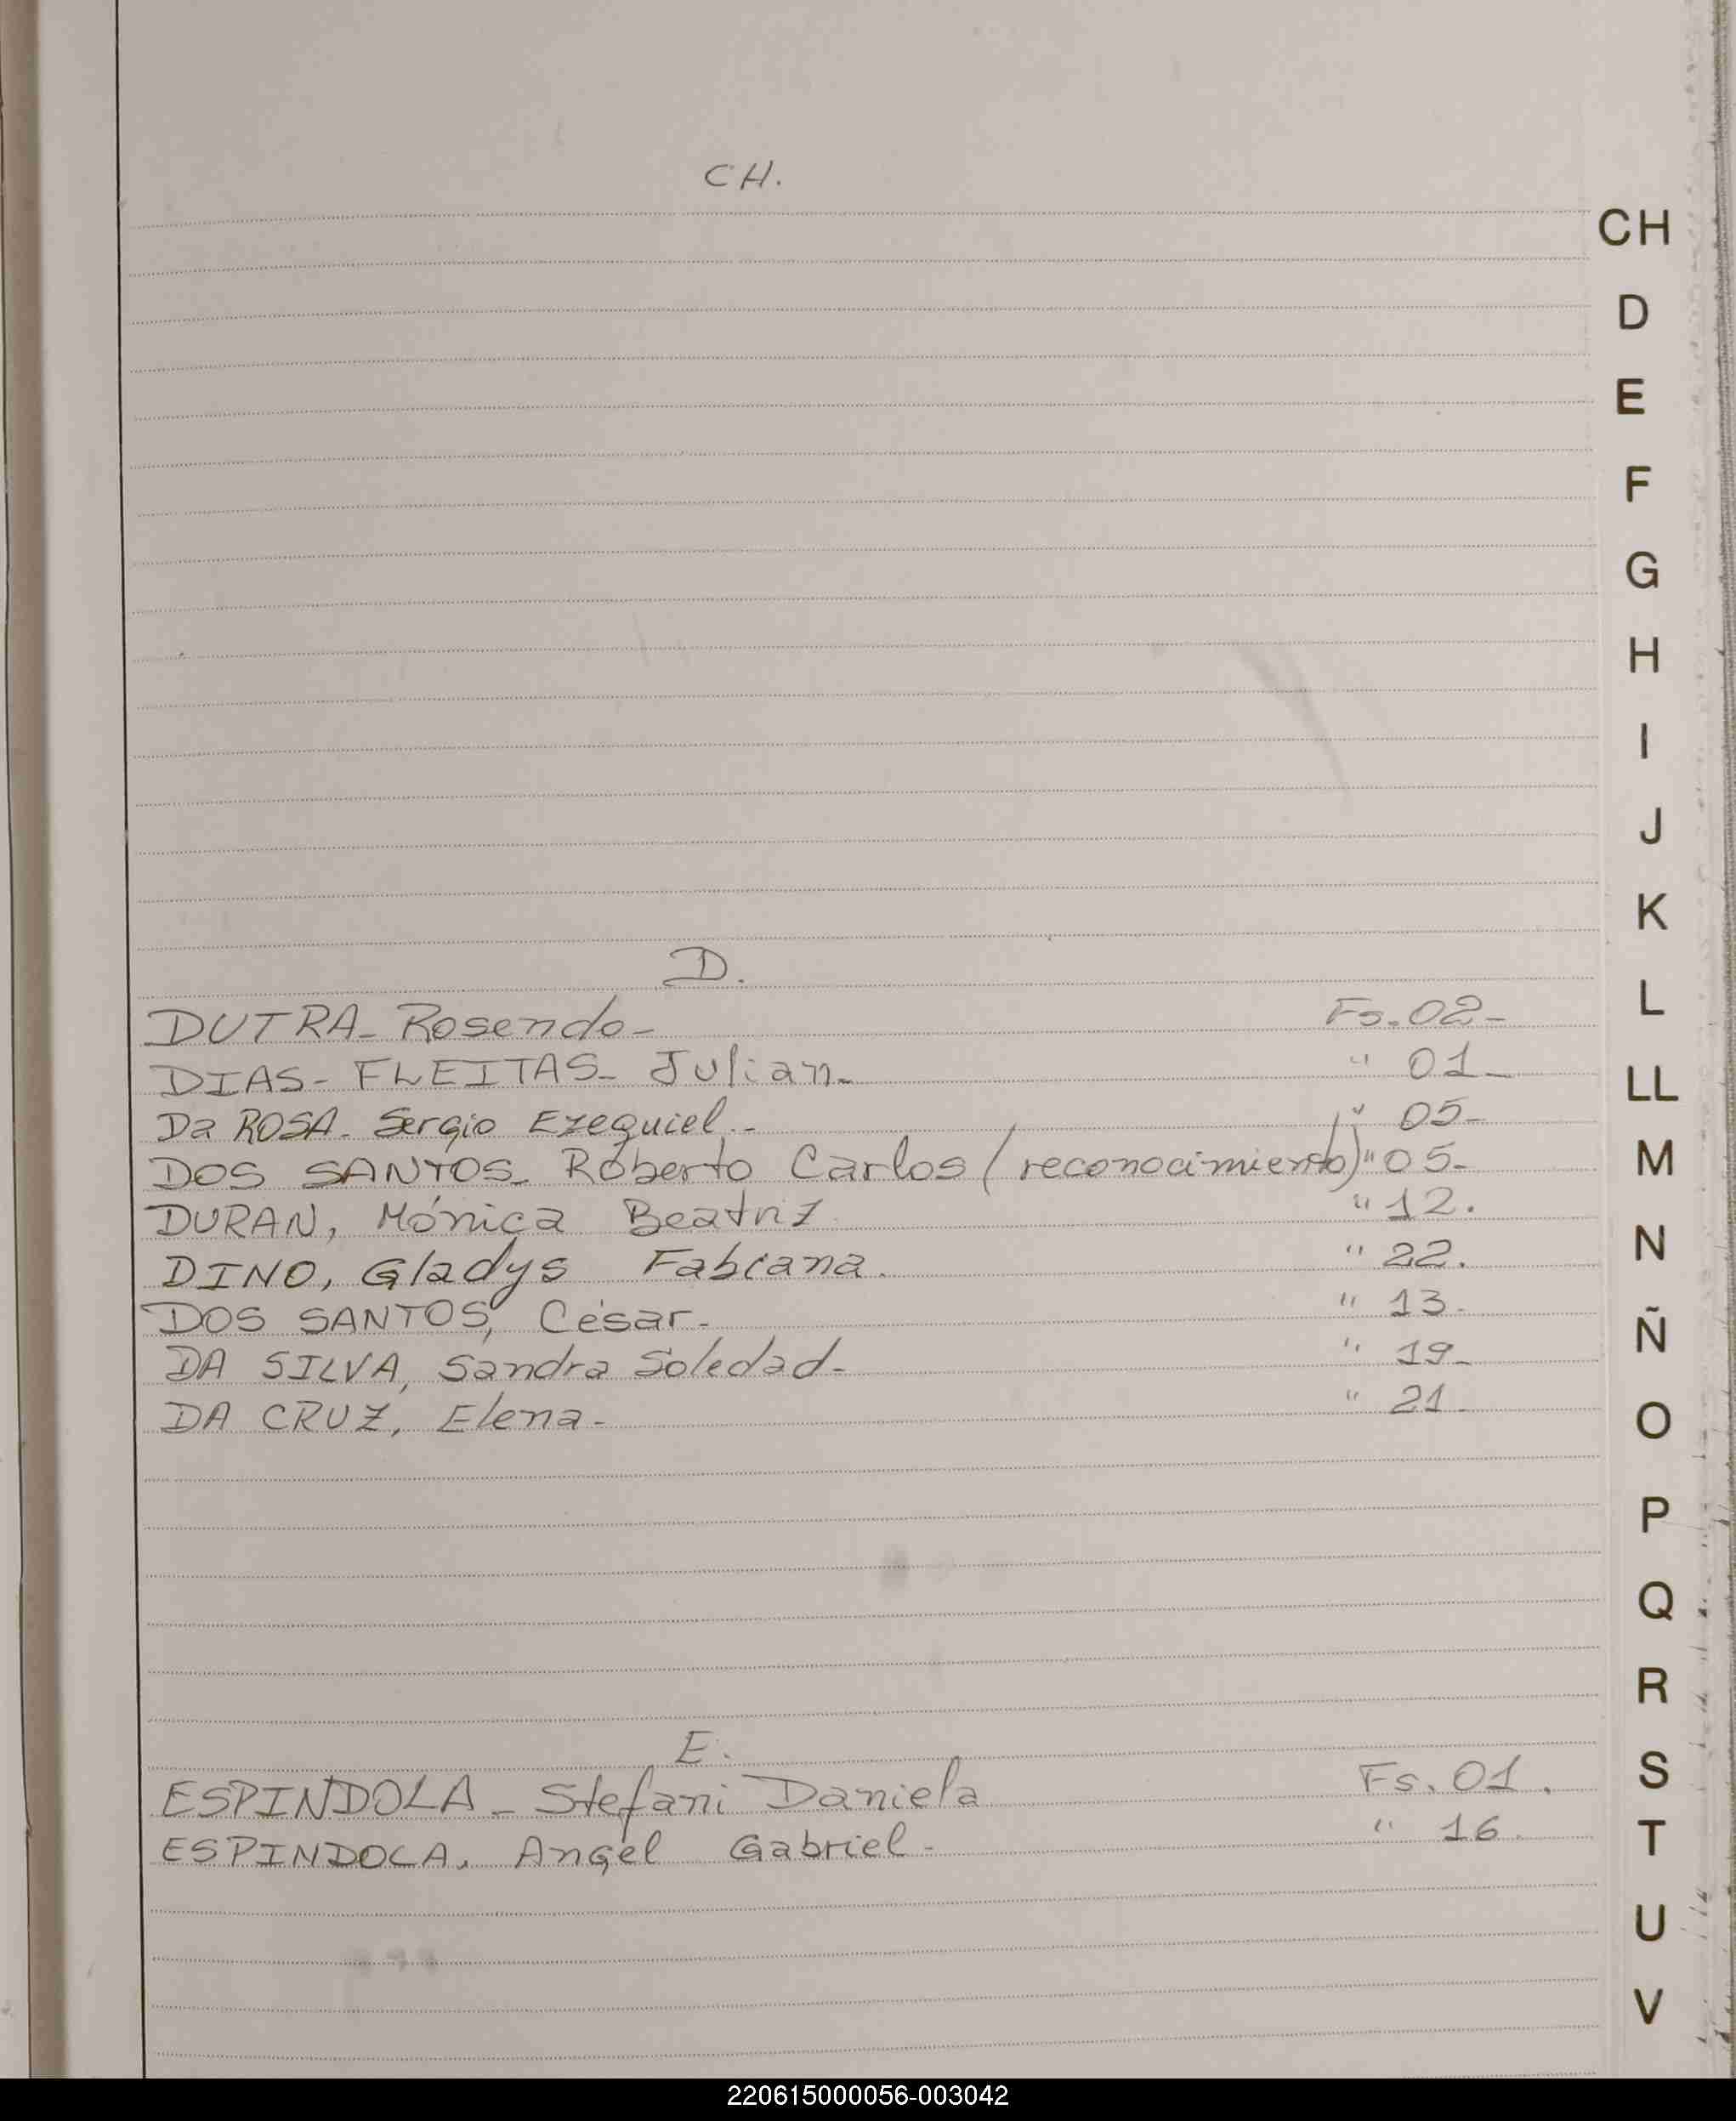 CH.
CH
D
E
F
G
H
I
J
K
L
LL
M
N
Ñ
O
P
Q
R
S
T
U
V
D.
DUTRA- Rosendo- Fs. 02-
DIAS- FLEITAS- Julian- " 01-
Da ROSA- Sergio Ezequiel.- " 05-
DOS SANTOS- Roberto Carlos (reconocimiento) " 05-
DURAN, Mónica Beatriz " 12.
DINO, Gladys Fabiana. " 22.
DOS SANTOS, César- " 13-
DA SILVA, Sandra Soledad- " 19-
DA CRUZ, Elena- " 21-
E.
ESPINDOLA- Stefani Daniela Fs. 01.
ESPINDOLA, Angel Gabriel- " 16.
220615000056-003042